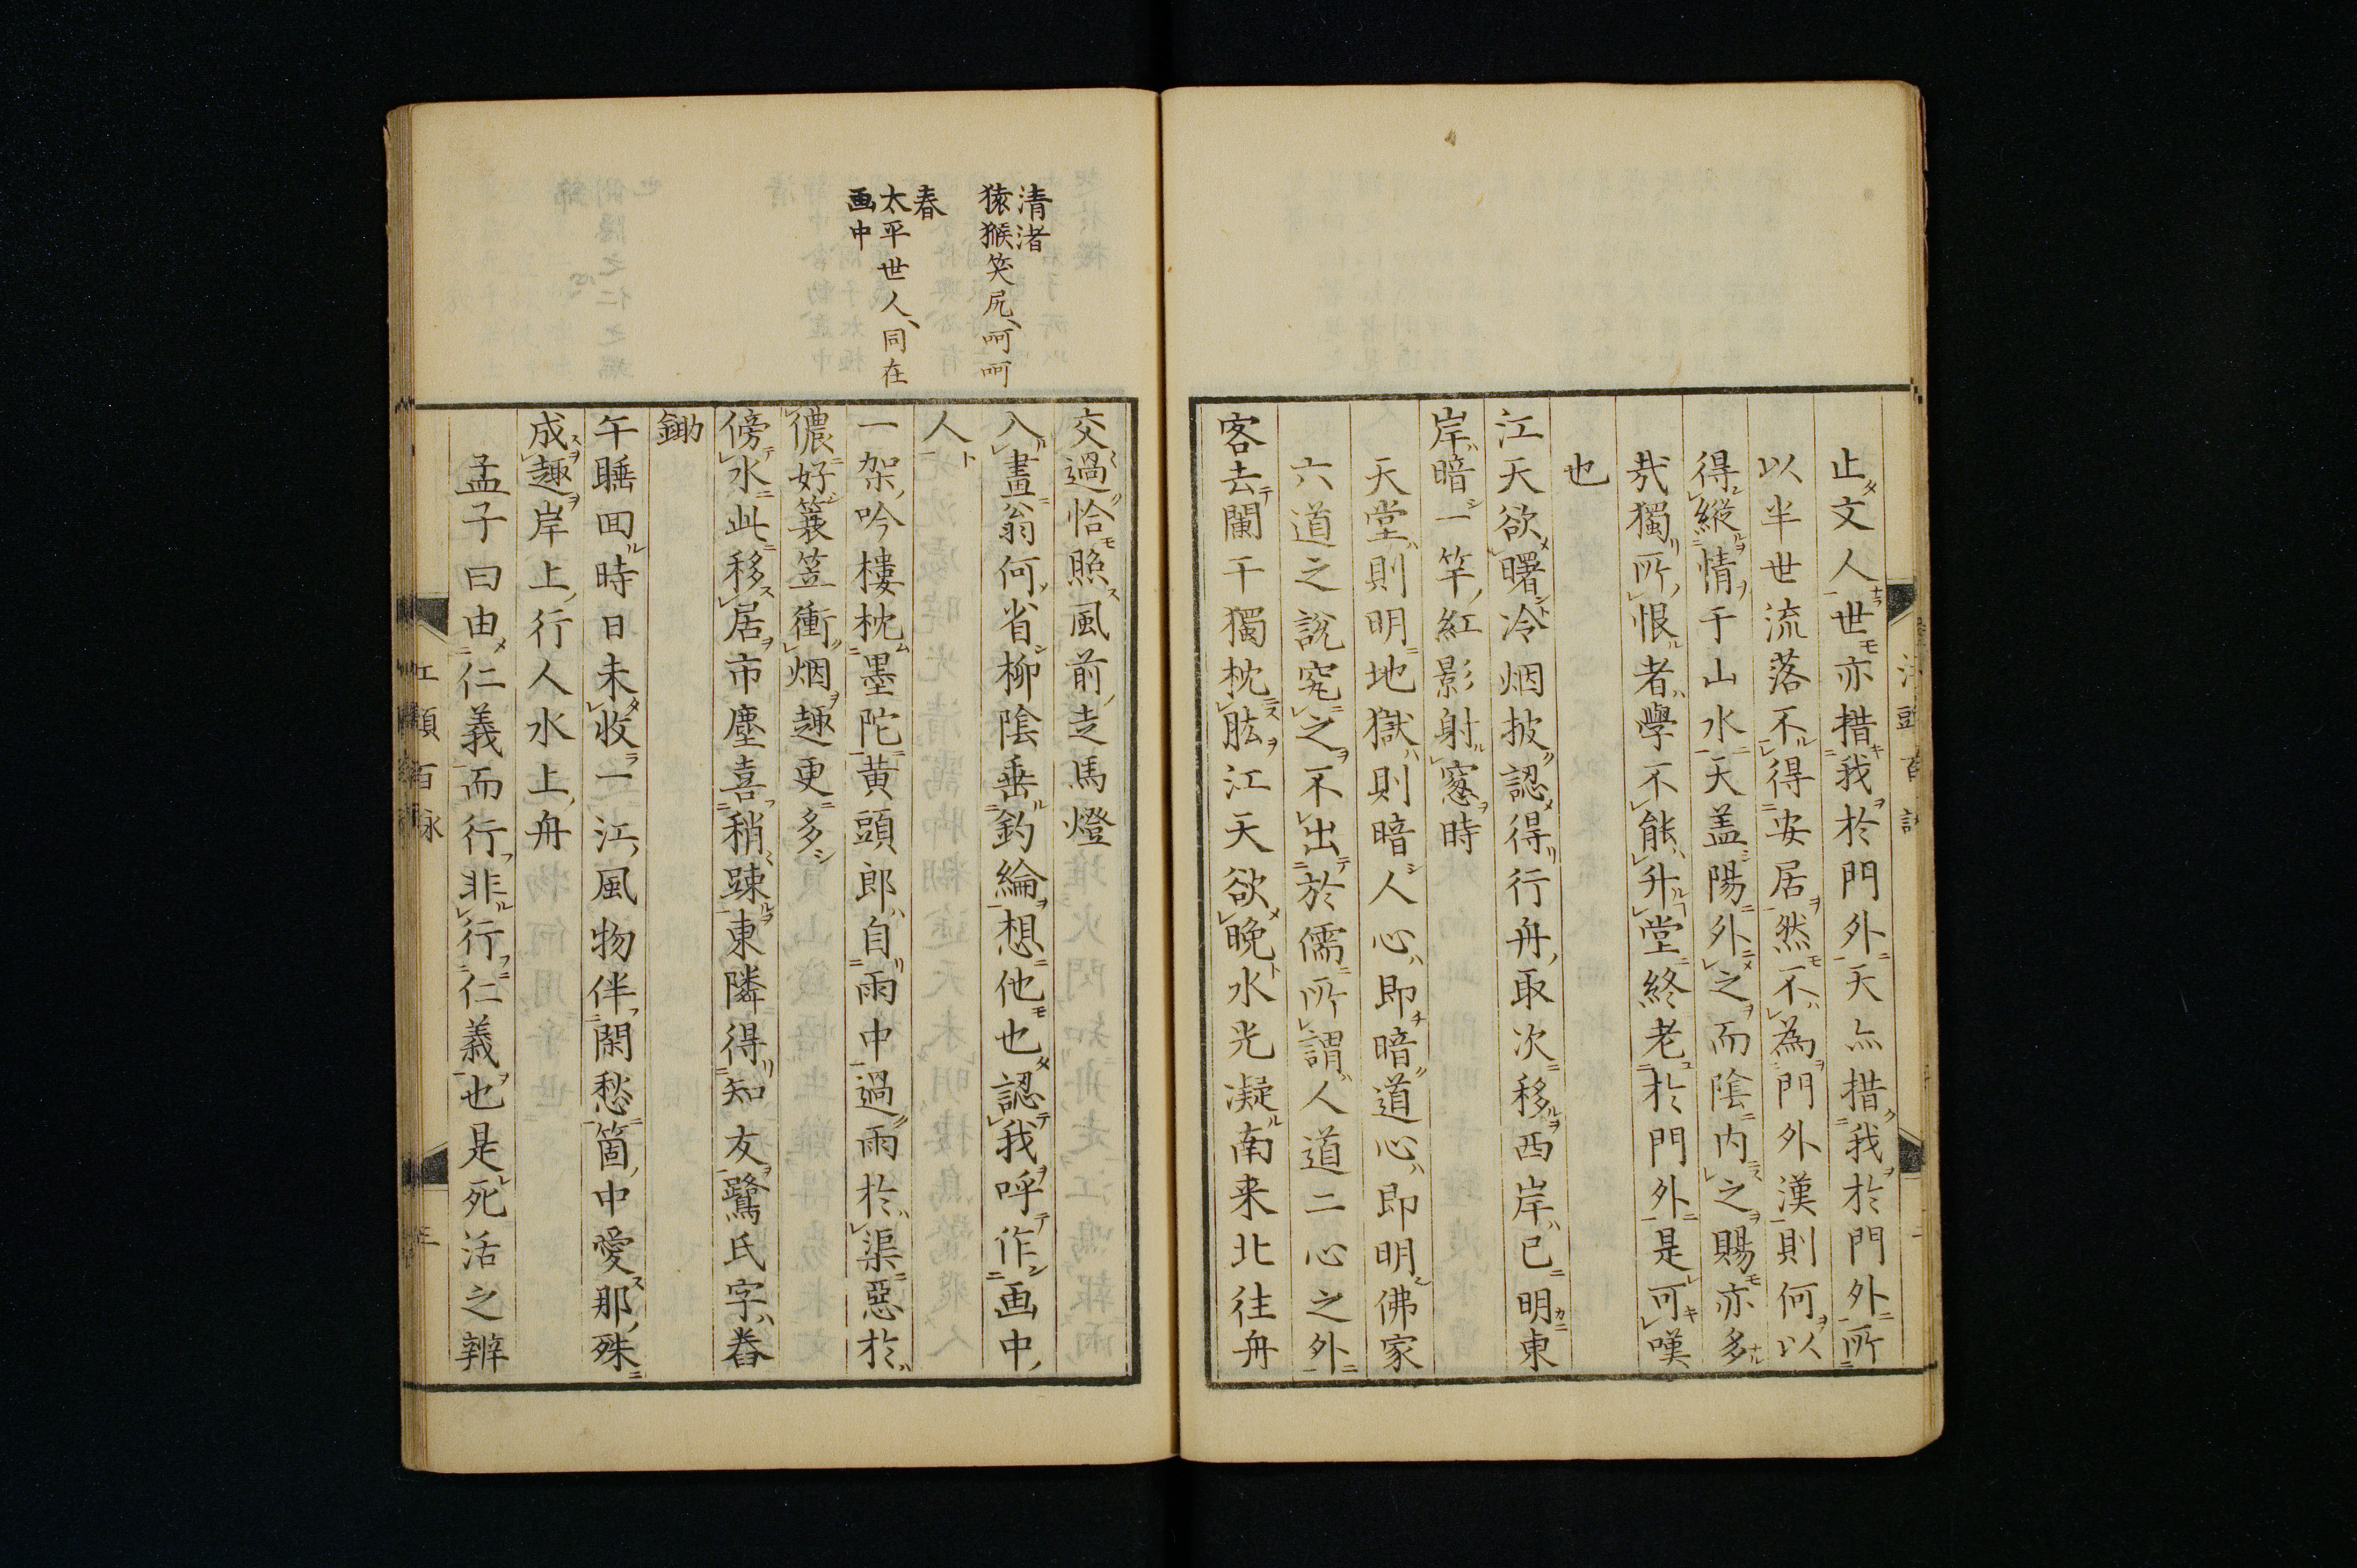 止文人世亦措我於門外天亦措我於門外所
以半世流落不得安居然不為門外漢則何以
得縦情于山水天盖陽外之而陰内之賜亦多
㢤獨所恨者學不能升堂終老於門外是可嘆
也
江天欲曙冷烟披認得行舟取次移西岸已明東
岸暗一竿紅影射窓時
天堂則明地獄則暗人心即暗道心即明佛家
六道之説究之不出於儒所謂人道二心之外
客去闌干獨枕肱江天欲晩水光凝南来北往舟
清渚
猿猴笑尻呵呵
春
太平世人同在
画中
交過恰照風前走馬燈
入畫翁何省柳陰垂釣綸想他也認我呼作画中
人
一架吟樓枕墨陀黄頭郎自雨中過雨於渠惡於
儂好簑笠衝烟趣更多
傍水此移居市塵喜稍踈東隣得知友鷺氏字舂
鋤
午睡回時日未收一江風物伴閑愁箇中愛那殊
成趣岸上行人水上舟
孟子曰由仁義而行非行仁義也是死活之辨
江頭百詠